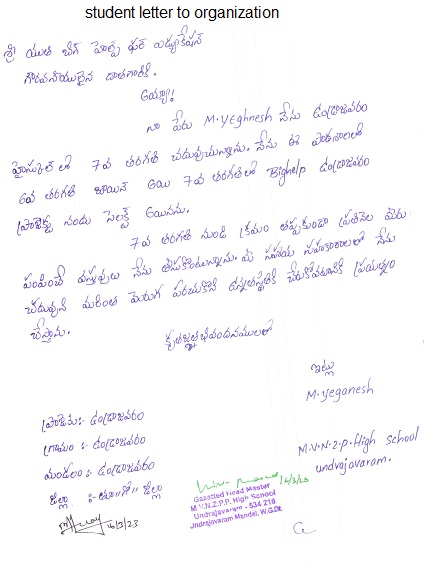 student letter to organization
శ్రీ యుత బిగ్ హెల్ప్ ఫర్ ఎడ్యుకేషన్
గౌరవనీయులైన దాతగారికి.
అయ్యా!
నా పేరు M.Yeghnesh నేను ఉండ్రాజవరం
హైస్కూల్ లో 7వ తరగతి చదువుచున్నాను. నేను ఈ పాఠశాలలో
6వ తరగతి జాయిన్ అయి 7వ తరగతిలో Bighelp ఉండ్రాజవరం
ప్రాజెక్టు నందు సెలక్ట్ అయినను.
7వ తరగతి నుండి క్రమం తప్పకుండా ప్రతినెల మీరు
పంపించే వస్తువులు నేను తీసుకొంటున్నాను. మీ సహాయ సహకారాలలో నేను
చదువుని మరింత మెరుగు పరచుకొని ఉన్నతస్థితికి చేరుకోవటానికి ప్రయత్నం
చేస్తాను.
కృతజ్ఞతాభివందనములలో
ఇట్లు
M.Yeganesh
M.V.N.Z.P.High school
undrajavaram.
ప్రాజెక్టు:- ఉండ్రాజవరం
గ్రామం :- ఉండ్రాజవరం
మండలం :- ఉండ్రాజవరం
జిల్లా :- తూ॥గో॥ జిల్లా
16/3/23
16/3/23
Gazetted Head Master
M.V.N.Z.P.P. High School
Undrajavaram - 534 216
Undrajavaram Mandal, W.G.Dt